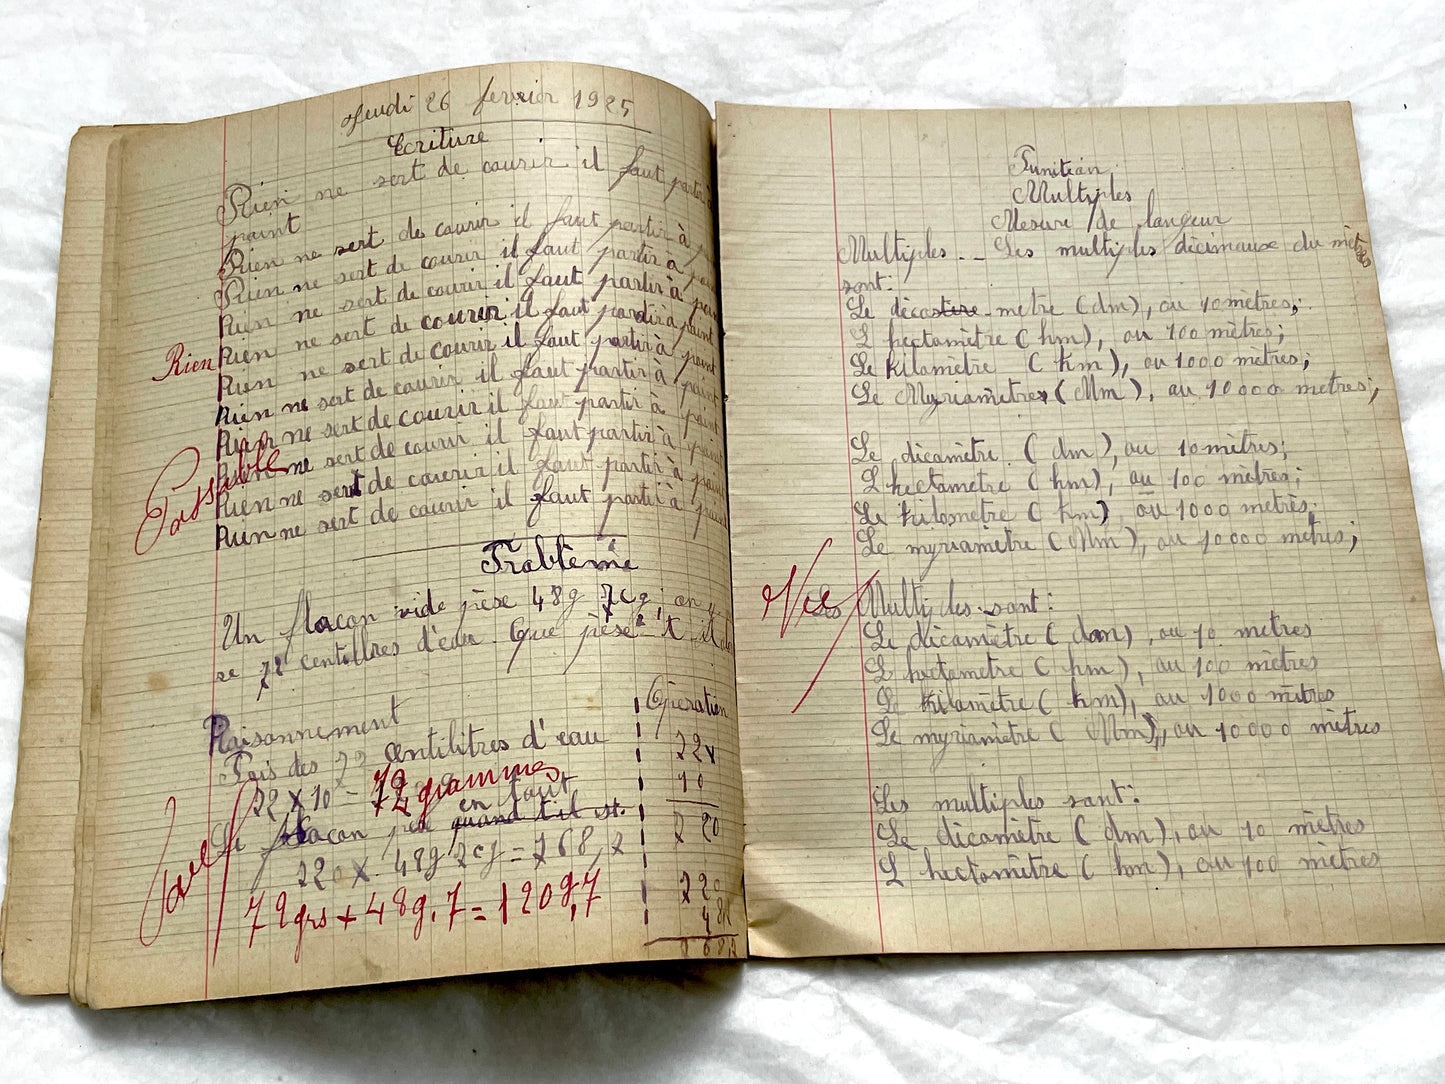 Jeudi 26 fevrier 1925
Ecriture
Rien ne sert de courir il faut partir à
point
Rien ne sert de courir il faut partir à
Rien ne sert de courir il faut partir à
Rien ne sert de courir il faut partir à point
Rien ne sert de courir il faut partir à point
Rien
Rien ne sert de courir il faut partir à point
Rien ne sert de courir il faut partir à point
Rien ne sert de courir il faut partir à point
Passable
ne sert de courir il faut partir à
Rien ne sert de courir il faut partir à
Rien ne sert de courir il faut partir à
Problème
Un flacon vide pèse 48g 7cg; on y
se 72 centilitres d'eau. Que pèse t il
Raisonnement
Opération
Pois des 72 centilitres d'eau
22 x 10 = 72 grammes
Le flacon pèse quand t il est.
en tout
220 x 48g 7cg = 768,2
72grs + 48g,7 = 120g,7
22x
10
220
220
Punition
Multiples
Mesure de langeur
Multiples _ Les multiples décimause du mètres
sont:
Le décastere metre (dm), ou 10 mètres;
L hectamètre (hm), ou 100 mètres;
Le kilamètre (km), ou 1000 mètres;
Le Myriamètre (Mm), ou 10000 mètres;
Le dicamètre (dm), ou 10 mètres;
L hectamètre (hm), ou 100 mètres;
Le kilomètre (km), ou 1000 mètres.
Le myriamètre (Mm), ou 10000 mètres;
Les Multiples sont:
Le dicamètre (dam), ou 10 mètres
L hectametre (hm), ou 100 mètres
Le kilamètre (km), ou 1000 mètres
Le myriamètre (Mm), ou 10000 mètres
Les multiples sont:
Le dicamètre (dm), ou 10 mètres
L hectomètre (hm), ou 100 mètres